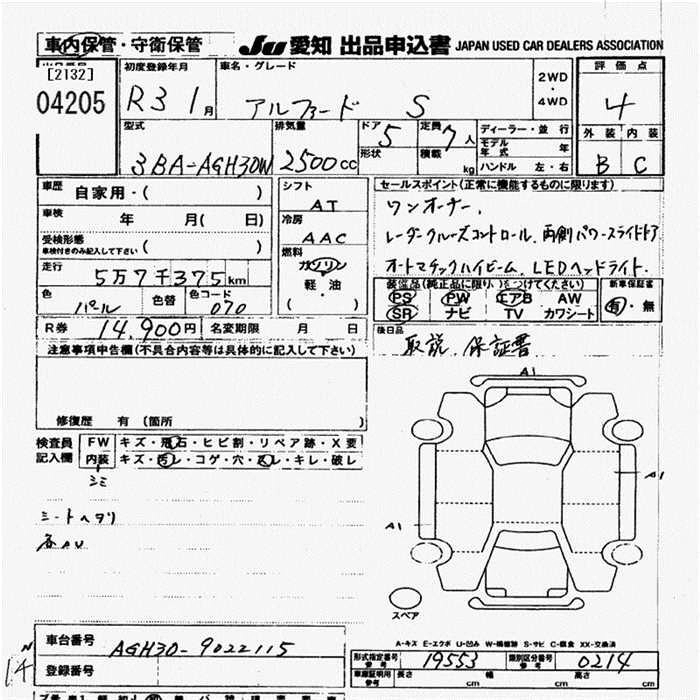 車内保管・守衛保管 JU 愛知 出品申込書 JAPAN USED CAR DEALERS ASSOCIATION
[2132]
04205
初度登録年月 R3 1月
車名・グレード アルファード S
2WD・4WD
評価点 4
外装 内装
B C
型式 3BA-AGH30W
排気量 2500cc
ドア 5
形状
定員 7人
積載 kg
ディーラー・並行
モデル年式 年
ハンドル 左・右
車歴 自家用・( )
車検 年 月( 日)
受検形態 車検付きのみ記入して下さい ( )
走行 5万7千375km
色 パール 色替 色コード 070
R券 14,900円 名変期限 月 日
シフト AT
冷房 AAC
燃料 ガソリン 軽・油 ( )
セールスポイント(正常に機能するものに限ります)
ワンオーナー、
レーダークルーズコントロール、両側パワースライドドア
オートマチックハイビーム、LEDヘッドライト、
装備品(純正品に限り○をつけてください) 新車保証書
PS PW エアB AW 有・無
SR ナビ TV カワシート
後日品
取説、保証書
注意事項申告欄(不具合内容等は具体的に記入して下さい)
修復歴 有 (箇所 )
検査員記入欄
FW キズ・飛石・ヒビ割・リペア跡・X要
内装 キズ・汚レ・コゲ・穴・スレ・キレ・破レ
シミ
シートヘタリ
各AU
A1
A1
A1
スペア
A-キズ E-エクボ U-凹み W-補修跡 S-サビ C-腐食 XX-交換済
車台番号 AGH30-9022115
登録番号
型式指定番号 参考 19553 類別区分番号 参考 0214
車庫証明用 参考 長さ cm 幅 cm 高さ cm